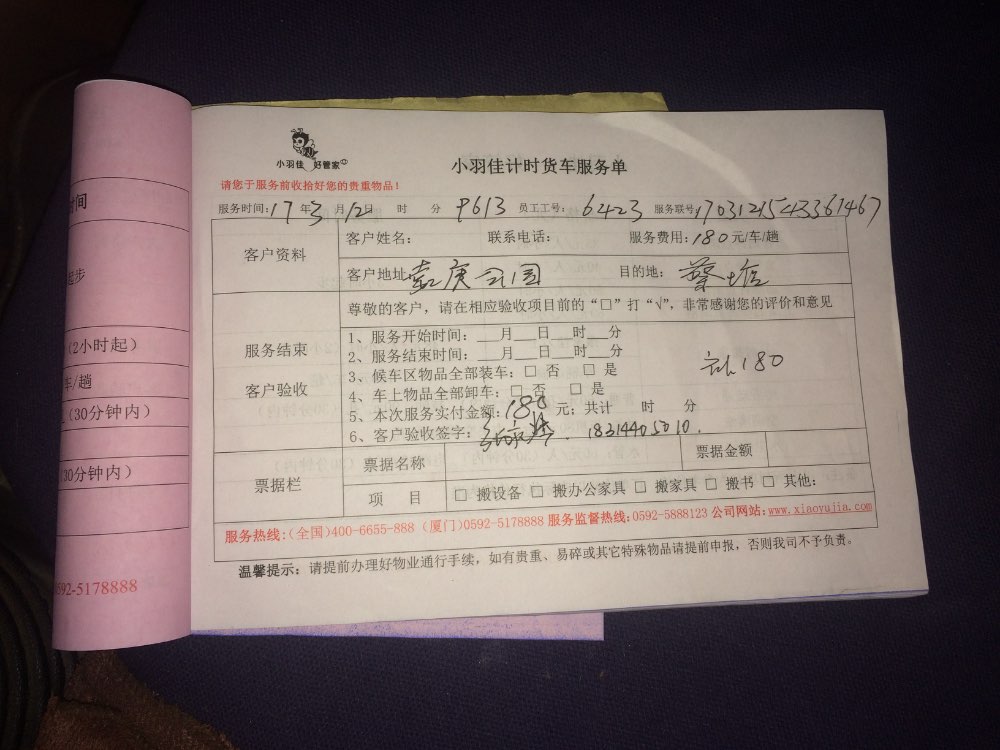 小羽佳 好管家
小羽佳计时货车服务单
请您于服务前收拾好您的贵重物品！
服务时间：17年3月12日 时 分 9613 员工工号：6423 服务联号：1703121543361467
客户资料
客户姓名： 联系电话： 服务费用：180元/车/趟
客户地址： 公园 目的地：蔡塘
尊敬的客户，请在相应验收项目前的“□”打“√”，非常感谢您的评价和意见
服务结束
客户验收
1、服务开始时间：___月___日___时___分
2、服务结束时间：___月___日___时___分
3、候车区物品全部装车：□ 否 □ 是
4、车上物品全部卸车：□ 否 □ 是
5、本次服务实付金额：180元；共计 时 分
6、客户验收签字： 18314405010.
180
票据栏
票据名称 票据金额
项 目 □ 搬设备 □ 搬办公家具 □ 搬家具 □ 搬书 □ 其他：
服务热线：(全国)400-6655-888 (厦门)0592-5178888 服务监督热线：0592-5888123 公司网站：www.xiaoyujia.com
温馨提示：请提前办理好物业通行手续，如有贵重、易碎或其它特殊物品请提前申报，否则我司不予负责。
时间
起步
(2小时起)
车/趟
(30分钟内)
(30分钟内)
0592-5178888